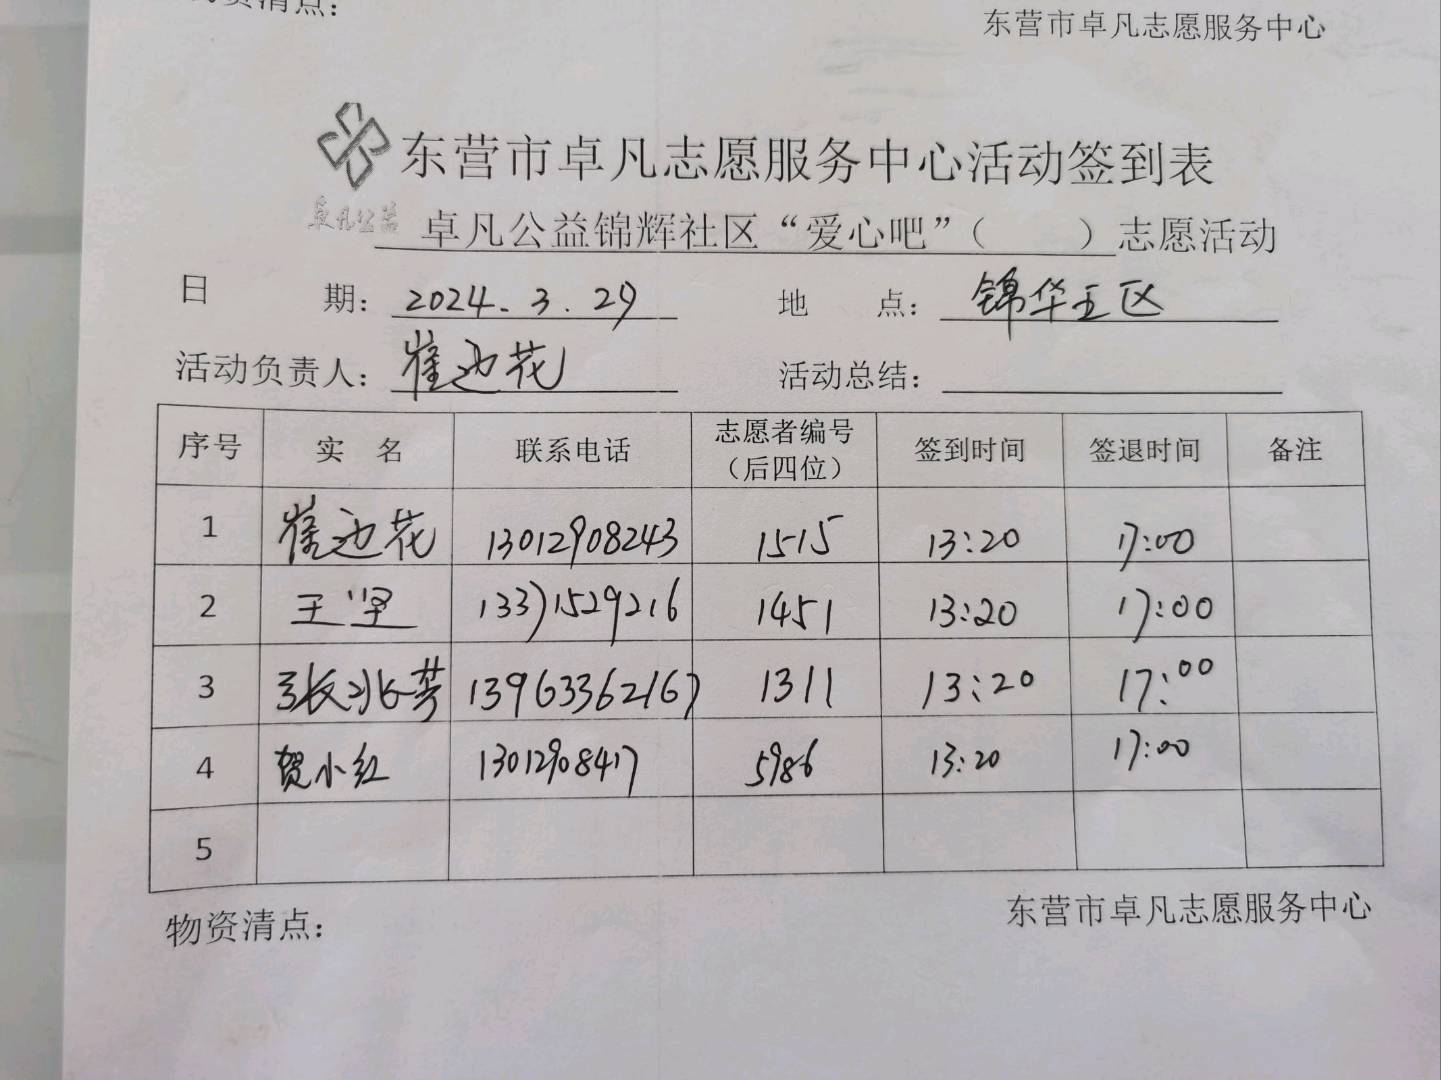 物资清点：
东营市卓凡志愿服务中心
东营市卓凡志愿服务中心活动签到表
卓凡公益
卓凡公益锦辉社区“爱心吧”（　　）志愿活动
日　期：2024.3.29　地　点：锦华五区
活动负责人：崔迎花　活动总结：
序号　实 名　联系电话　志愿者编号（后四位）　签到时间　签退时间　备注
1　崔迎花　13012908243　1515　13:20　17:00
2　王坚　13371529216　1451　13:20　17:00
3　张兆芳　13963362167　1311　13:20　17:00
4　贺小红　13012908417　5986　13:20　17:00
5
物资清点：
东营市卓凡志愿服务中心